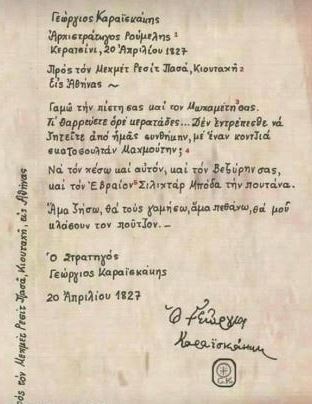 Γεώργιος Καραϊσκάκης
Ἀρχιστράτηγος Ρούμελης 1
Κερατσίνι, 20 Ἀπριλίου 1827
Πρὸς τὸν Μεχμὲτ Ρεσὶτ Πασά, Κιουταχῆ 2
Εἰς Ἀθήνας ~
Γαμῶ τὴν πίστη σας καὶ τὸν Μωχαμέτη 3 σας.
Τί θαρρεύετε ὀρὲ κερατάδες... Δὲν ἐντρέπεσθε νὰ
ζητεῖτε ἀπὸ ἡμᾶς συνθήκην, μὲ ἕναν κοντζιὰ
σκατοσουλτὰν Μαχμούτην; 4
Νὰ τὸν χέσω καὶ αὐτόν, καὶ τὸν Βεζύρην σας,
καὶ τὸν Ἑβραῖον 5 Σιλιχτὰρ Μπόδα τὴν πουτάνα.
Ἄμα ζήσω, θὰ τοὺς γαμήσω, ἅμα πεθάνω, θὰ μοῦ
κλάσουν τὸν ποῦτζον. –
Ὁ Στρατηγός
Γεώργιος Καραϊσκάκης
20 Ἀπριλίου 1827
Ὁ Γεώργιος
Καραϊσκάκης
Γ.Κ.
ρὸς τὸν Μεχμὲτ Ρεσὶτ Πασά, Κιουταχῆ, εἰς Ἀθήνας